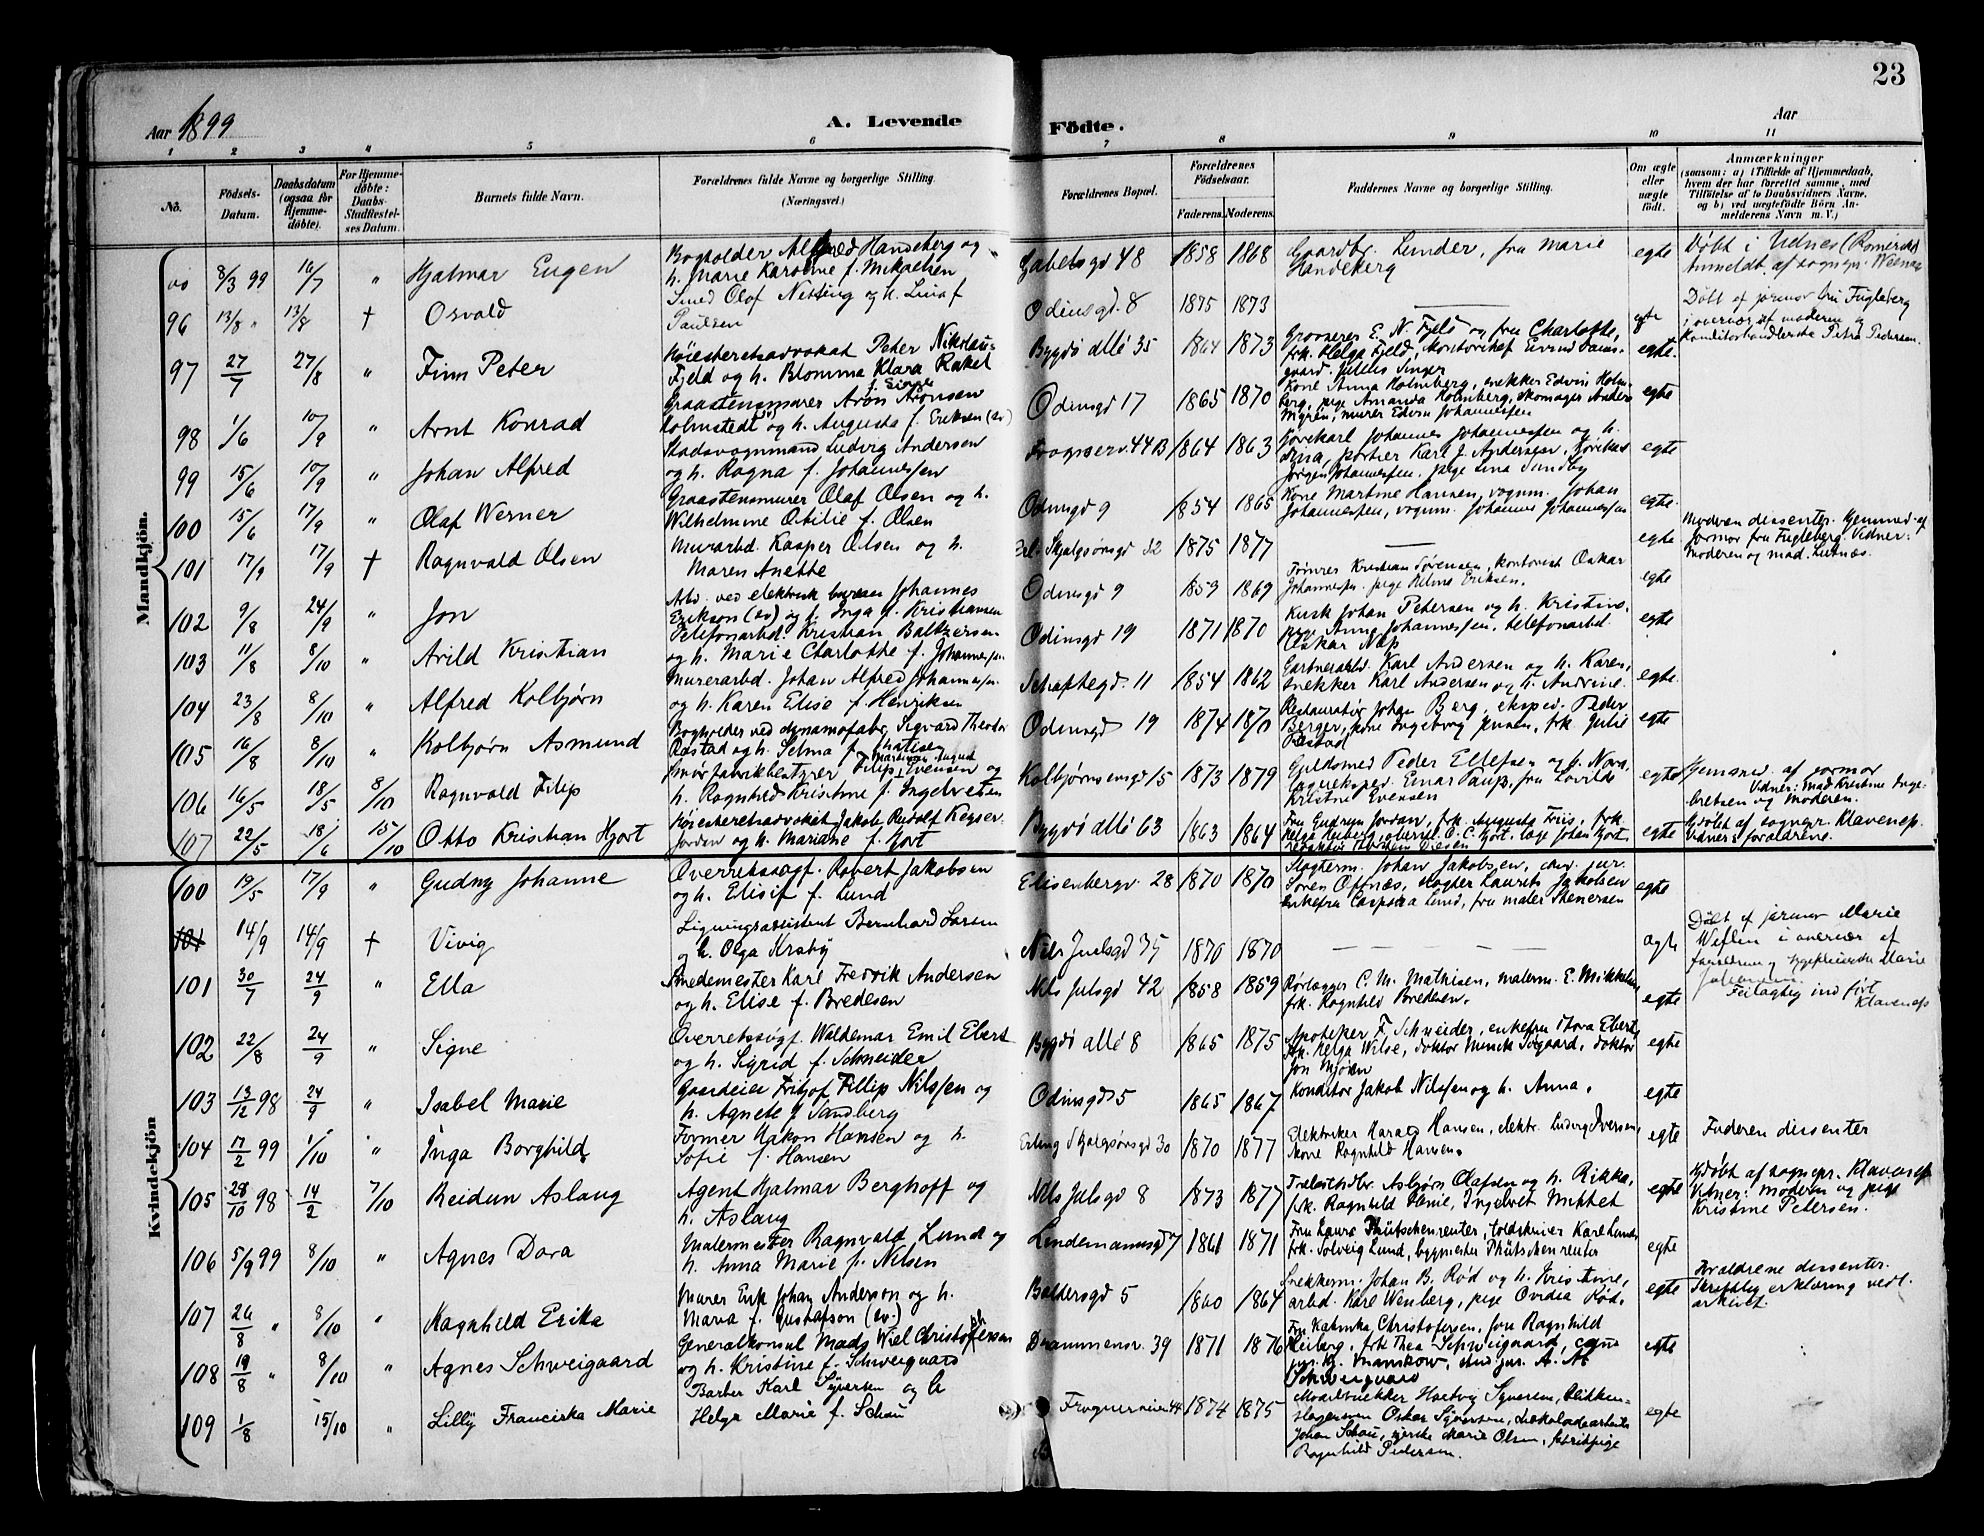 23
Aar 1899
A. Levende
Födte.
Aar
1 2 3 4 5 6 7 8 9 10 11
No.
Födsels-Datum.
Daabsdatum (ogsaa for Hjemmedøbte).
For Hjemmedøbte: Daabs-Stadfæstelses Datum.
Barnets fulde Navn.
Forældrenes fulde Navne og borgerlige Stilling. (Næringsvei.)
Forældrenes Bopæl.
Forældrenes Födselsaar.
Faderens. Moderens.
Faddernes Navne og borgerlige Stilling.
Om ægte eller uægte födt.
Anmærkninger
(saasom: a) i Tilfælde af Hjemmedaab, hvem der har forrettet samme, med Tilföielse af to Daabsvidners Navne, og b) ved uægtefödte Börn Anmelderens Navn m. V.)
Mandkjön.
8/3 99 16/7 " Hjalmar Eugen
Bogholder Alfred Handeberg og
h. Marie Karoline f. Mikaelsen
Gabelsgd 48 1858 1868
Gaardbr. Lunder, fru Marie
Handeberg
egte
Døbt i Udnes (Romerike)
Anmeldt af sognepr.
96 13/8 " 13/8 † Osvald
Smed Olof Netting og h. Lina f.
Paulsen
Odinsgd. 8 1875 1873 — egte
Døbt af jormor fru Fugleberg
i overvær af moderen og
Petra Pedersen.
97 27/7 27/8 " Finn Peter
Høiesteretsadvokat Peter Nikolaus
Fjeld og h. Blomma Klara Rakel
f. Singer
Bygdø allé 35 1864 1873
Grosserer E. N. Fjeld og fru Charlotte,
frk. Helga Fjeld, kontorchef Eivind
Julius Singer
egte.
98 1/6 10/9 " Arnt Konrad
Graastensmurer Aron Aronsen
Holmstedt og h. Augusta f. Eriksen (sv)
Odinsgd 17 1865 1870
Kone Anna Holmberg, snekker Edvin Holmberg, pige Amanda Holmberg, skomager Anders
Mgren, murer Edvin Johannessen
egte
99 15/6 10/9 " Johan Alfred
Stadsvognmand Ludvig Andersen
og h. Ragna f. Johannessen
Frognerv. 44B 1864 1863
Johannes Johannessen og h.
Lina, portier Karl J. Andersen,
Jørgen Johannessen, pige Lina Sundby
egte
100 15/6 17/9 " Olaf Werner
Graastensmurer Olaf Olsen og h.
Wilhelmine Otilie f. Olsen
Odinsgd 9 1854 1865
Kone Martine Hansen, vognm. Johan
Johannessen, vognm. Johannes Johannessen
egte.
101 17/9 17/9 † Ragnvald Olsen
Murarbd. Kasper Olsen og h.
Maren Anette
Erl. Skjalgsønsgd 32 1875 1877 — egte
Moderen dissenter. Hjemmed. af
jormor fru Fugleberg. Vidner:
moderen og mad. Lutnæs.
102 9/8 24/9 " Jon
Arb. ved elektrisk bureau Johannes
Erikson (sv) og h. Inga f. Kristiansen
Odinsgd 9 1859 1869
Kristian Sørensen, kontorist Oskar
Johannesen, pige Eriksen.
egte
103 11/8 8/10 " Arild Kristian
Telefonarbd. Kristian Baltzersen
og h. Marie Charlotte f. Johannessen
Odinsgd 19 1871 1870
Kusk Johan Petersen og h. Kristine.
Anna Johannessen, telefonarbd.
Oskar
egte
104 23/8 8/10 " Alfred Kolbjørn
Murerarbd. Johan Alfred Johannessen
og h. Karen Elise f. Henriksen
Schaftegd. 11 1854 1862
Gartnerarbd. Karl Andersen og h. Karen,
snekker Karl Andersen og h. Andrine.
egte.
105 16/8 8/10 " Kolbjørn Asmund
Bogholder ved dynamofabr. Sigvard Theodor
Rostad og h. Selma f.
Odinsgd 19 1874 1870
Restauratør Johan Berg, eksped. Peder
Berger, kone Ingeborg Jensen, frk. Julie
Rostad
egte
106 16/5 18/5 8/10 Ragnvald Filip
Smørfabrikbestyrer Filip Evensen og
h. Ragnhild Kristine f. Ingebretsen
Kolbjørnsensgd 15 1873 1879
Guldsmed Peder Ellefsen og h. Nora,
Einar Pauss, fru Lovilde
Kristine Evensen
egte
Hjemmed. af jormor
Vidner: Mad Kristine Ingebretsen og Moderen.
107 22/5 18/6 15/10 Otto Kristian Hjort
Høiesteretsadvokat Jakob Rudolf Keyser
Jordan og h. Mariane f. Hjort
Bygdø allé 63 1863 1864
Fru Gudrun Jordan, frk. Augusta Friis, frk.
Helga Huberg, C. C. Hjort, læge Johan Hjort,
egte
Hjdøbt af sognepr. Klavenes.
Vidner: foreldrene.
Kvindekjön
100 19/5 17/9 " Gudny Johanne
Overretssagf. Robert Jakobsen
og h. Elisif f. Lund
Elisenbergv. 28 1870 1870
Slagterm. Johan Jakobsen, cand. jur.
Søren Ofsnæs, slagter Laurits Jakobsen
enkefru Caspara Lund, fru maler Stenersen
egte
101 14/9 14/9 † Vivig
Ligningsassistent Bernhard Larsen
og h. Olga Kraby
Niels Juelsgd 35 1870 1870 — — — — egte
Døbt af jormor Marie
Weflen i overvær af
forældrene og sygepleierske Marie
Johannsen.
Feilagtig ind ført
Klavenes
101 30/7 24/9 " Ella
Smedemester Karl Fredrik Andersen
og h. Elise f. Bredesen
Nils Julsgd 42 1858 1859
Rørlægger C. M. Mathisen, malerm. E. Mikkelsen,
frk. Ragnhild Bredesen.
egte
102 22/8 24/9 " Signe
Overretssagf. Waldemar Emil Ebert
og h. Sigrid f. Schneider
Bygdø allé 8 1865 1875
Apoteker F. Schneider, enkefru Thora Ebert,
frk. Helga Wilse, doktor Munck Søgaard, doktor
Jon Mjøen
egte
103 13/12 98 24/9 " Isabel Marie
Gaardeier Fritjof Fillip Nilssen og
h. Agnete f. Sandberg
Odinsgd 5 1865 1867
Konditor Jakob Nilssen og h. Anna.
egte
104 17/2 99 1/10 " Inga Borghild
Former Hakon Hansen og h.
Sofie f. Hansen
Erling Skjalgsønsgd 30 1870 1877
Elektriker Harald Hansen, elektr. Ludvig Iversen,
kone Ragnhild Hansen.
egte
Faderen dissenter
105 28/10 98 14/2 7/10 Reidun Aslaug
Agent Hjalmar Berghoff og
h. Aslaug
Nils Julsgd 8 1873 1877
Trælasthdlr Asbjørn Olafsen og h. Rikka,
frk. Ragnhild Henie, Ingelvet Mikkel
egte
Hjdøbt af sognepr. Klavenes
Vidner: Moderen og pige
Kristine Petersen.
106 5/9 99 8/10 " Agnes Dora
Malermester Ragnvald Lund og
h. Anna Marie f. Nilsen
Lindemannsgd 7 1861 1871
Fru Laura Phützschenreuter, toldskriver Karl Lund,
frk. Solveig Lund, bygmester Phützschenreuter
egte
107 26/8 " 8/10 " Ragnhild Erika
Murer Erik Johan Anderson og h.
Maria f. Gustafson (sv.)
Baldersgd 5 1860 1864
Snekkerm. Johan B. Rød og h. Kristine,
arbd. Karl Wenberg, pige Ovidia Rød.
egte
Forældrene dissenter.
Skriftlig erklæring vedl.
arkivet.
108 19/8 " 8/10 " Agnes Schweigaard
Generalkonsul Mads Wiel Christofersen
og h. Kristine f. Schweigaard
Drammensv. 39 1871 1876
Fru Katinka Christofersen, fru Ragnhild
Heiberg, frk Thea Schweigaard, cand
jur. Kj. Manskow, stud. jur. A. M.
Schweigaard
egte
109 1/8 15/10 " Lilly Franciska Marie
Barber Karl Syversen og h.
Helga Marie f. Schau
Frognerveien 44 1874 1875
Modelsnekker Hartvig Syversen, Blikkenslagersvn Oskar Syversen, chokoladearbeider
Johan Schau, syerske Marie Olsen, fabrikpige
Ragnhild Pedersen.
egte